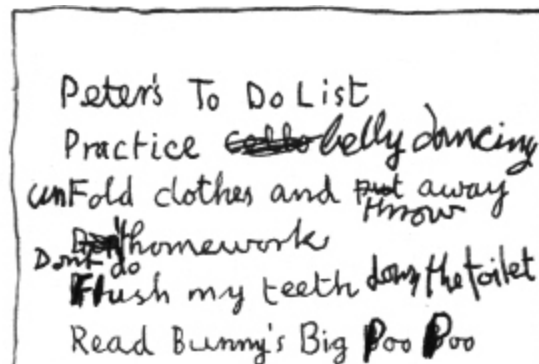 Peter's To Do List
Practice belly dancing
unFold clothes and throw away
Don't do homework
Flush my teeth down the toilet
Read Bunny's Big Poo Poo